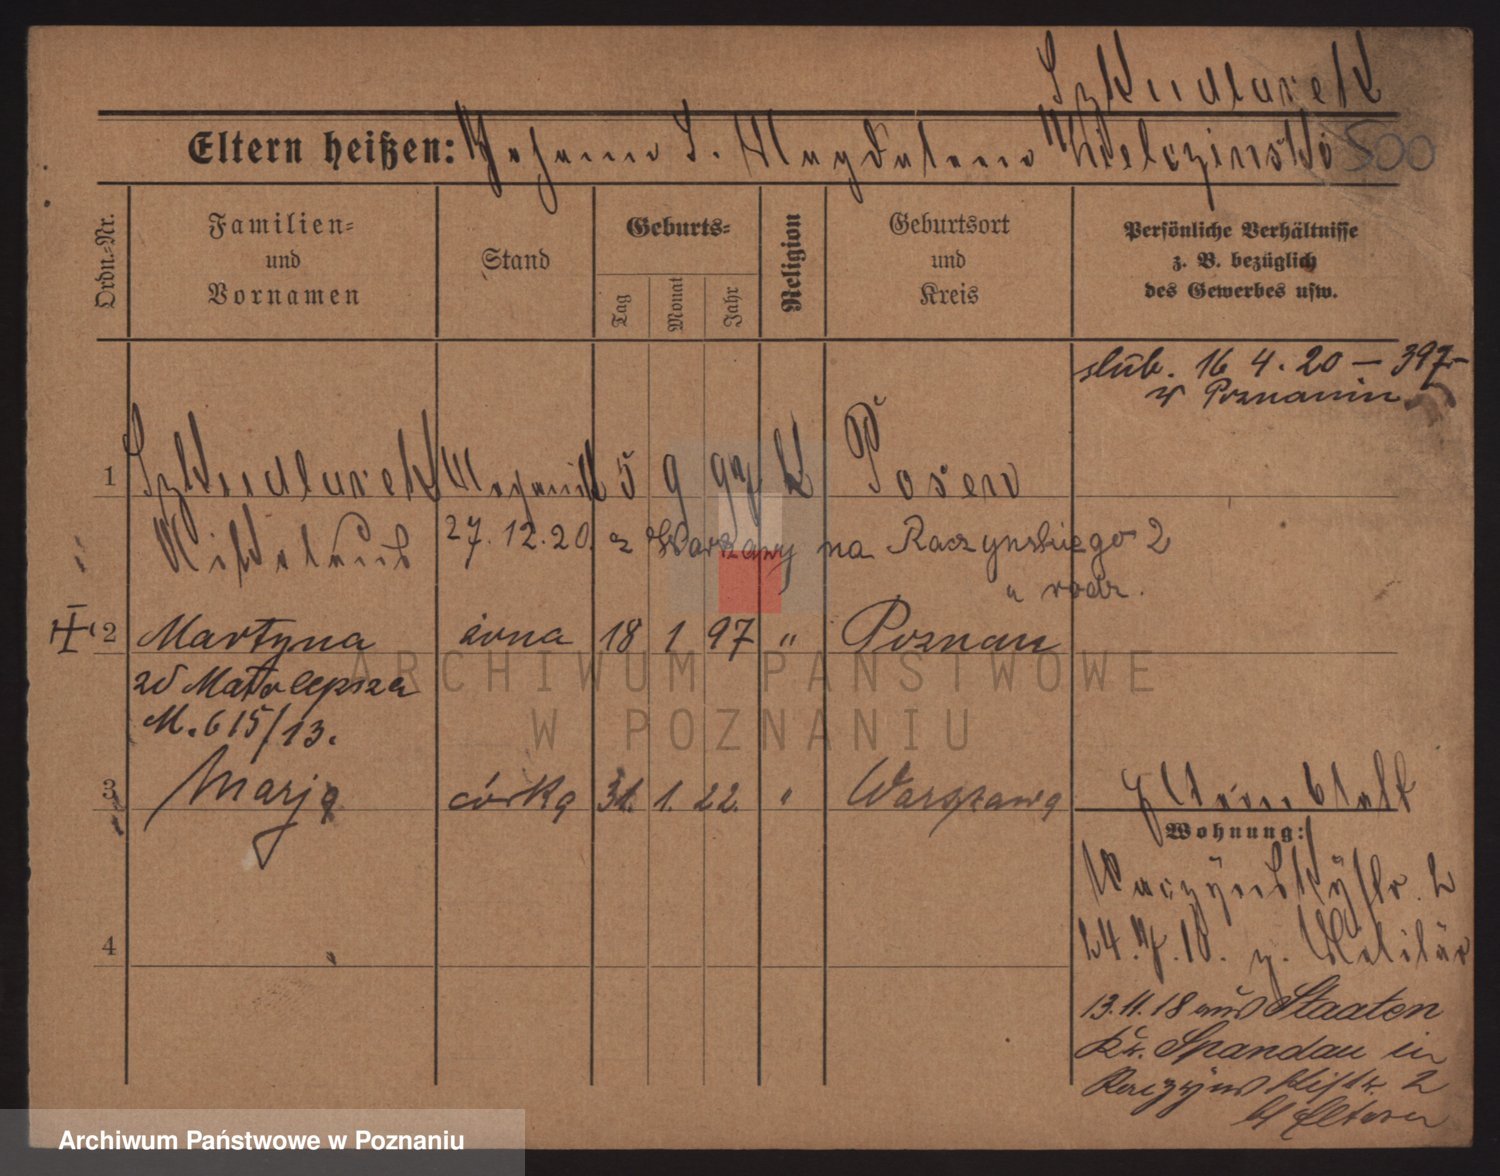 Szkudlarek
Eltern heißen: Johann S. Magdalena Wielczinska 500
Ordn.-Nr.
Familien-
und
Vornamen
Stand
Geburts-
Tag
Monat
Jahr
Religion
Geburtsort
und
Kreis
Persönliche Verhältnisse
z. B. bezüglich
des Gewerbes usw.
ślub. 16 4. 20 — 397
w Poznaniu
1 Szkudlarek Mechanik 5 9 97 k Posen
Nikolaus 27. 12. 20. z Warszawy na Raczynskiego 2
u rodz.
2 Martyna żona 18 1 97 " Poznań
zd Małolepsza
M. 615/13.
3 Marja córka 31. 1. 22. " Warszawa
Elternblatt
Wohnung:
Raczÿnskÿstr. 2
24. 7. 18. z. Militär
4
13. 11. 18 aus Staaten
Kr. Spandau in
Raczÿnskistr. 2
b/ Eltern
ARCHIWUM PAŃSTWOWE
W POZNANIU
Archiwum Państwowe w Poznaniu